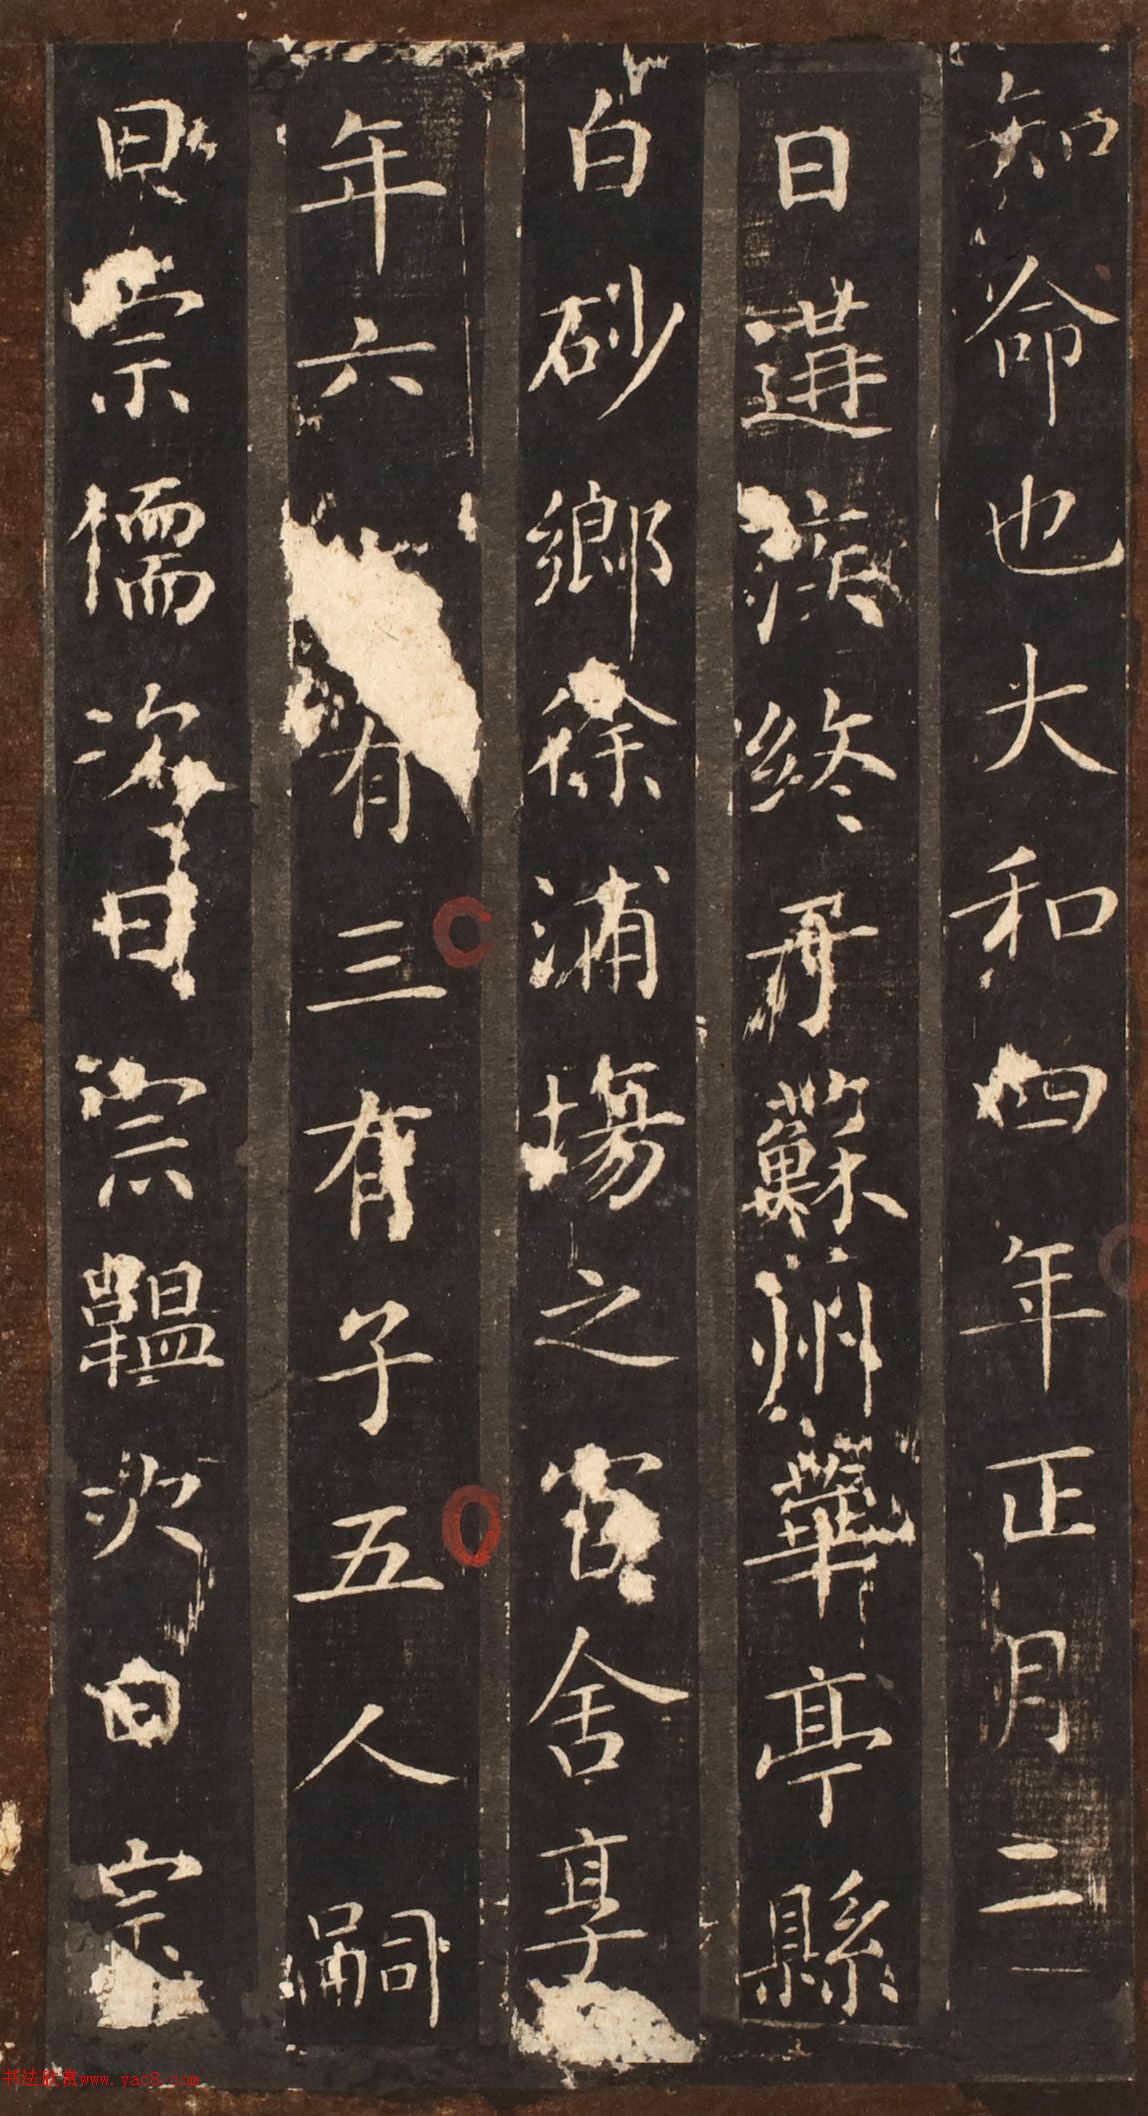 知命也大和四年正月二
日遘疾終于蘇州華亭縣
白砂鄉徐浦場之官舍享
年六有三有子五人嗣
曰宗儒次曰宗韞次曰宗
书法欣赏www.yac8.com